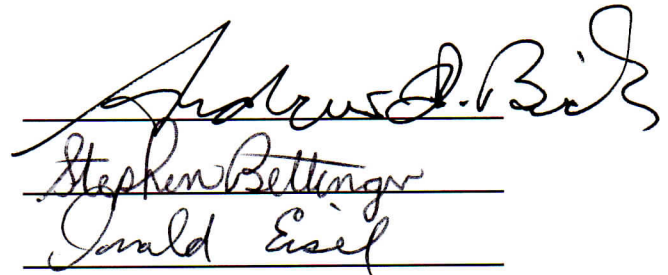 Andrew D. Beck
Stephen Bettinger
Donald Eisel